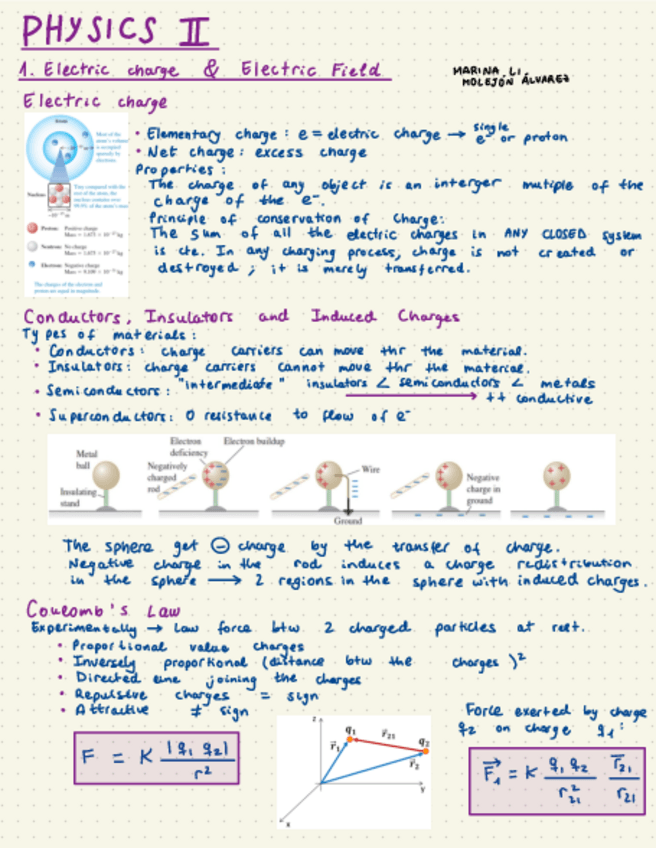 PHYSICS II
1. Electric charge & Electric Field
MARINA LI
MOLEJÓN ÁLVAREZ
Electric charge
Most of the
atom's volume
is occupied
sparsely by
electrons.
Tiny compared with the
rest of the atom, the
nucleus contains over
99.9% of the atom's mass
Nucleus
Proton: Positive charge
Neutron: No charge
Electron: Negative charge
The charges of the electron and
proton are equal in magnitude.
• Elementary charge : e = electric charge → single e⁻ or proton
• Net charge : excess charge
Properties :
The charge of any object is an interger mutiple of the
charge of the e⁻.
Principle of conservation of Charge:
The sum of all the electric charges in ANY CLOSED system
is cte. In any charging process, charge is not created or
destroyed ; it is merely transferred.
Conductors, Insulators and Induced Charges
Types of materials :
• Conductors : charge carriers can move thr the material.
• Insulators : charge carriers cannot move thr the material.
• Semiconductors : "intermediate" insulators < semiconductors < metals
++ conductive
• Superconductors: 0 resistance to flow of e⁻
Metal
ball
Insulating
stand
Electron
deficiency
Electron buildup
Negatively
charged
rod
Wire
Ground
Negative
charge in
ground
The sphere get ⊖ charge by the transfer of charge.
Negative charge in the rod induces a charge redistribution
in the sphere → 2 regions in the sphere with induced charges.
Coulomb's Law
Experimentally → Law force btw 2 charged particles at rest.
• Proportional value charges
• Inversely proportional (distance btw the charges)²
• Directed line joining the charges
• Repulsive charges = sign
• Attractive ≠ sign
F = K |q₁ q₂| / r²
z
q₁
r⃗₂₁
q₂
r⃗₁
r⃗₂
y
x
Force exerted by charge
q₂ on charge q₁ :
F⃗₁ = K q₁ q₂ / r₂₁² r̅₂₁ / r₂₁